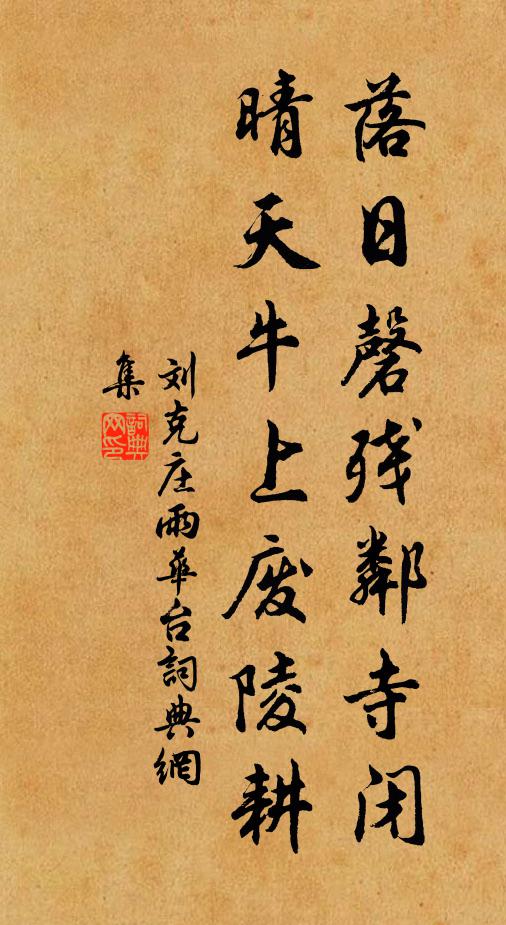 落日磬残鄰寺闭
晴天牛上废陵耕
刘克庄雨華台詞典網
集
詞典网印